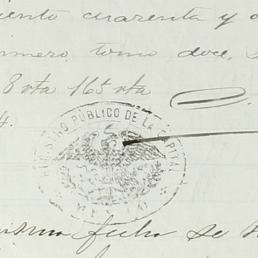 iento cuarenta y o
rimero, tomo doce,
8 vta 165 vta
4.
REGISTRO PÚBLICO DE LA CAPITAL
MEXICO
misma fecha se